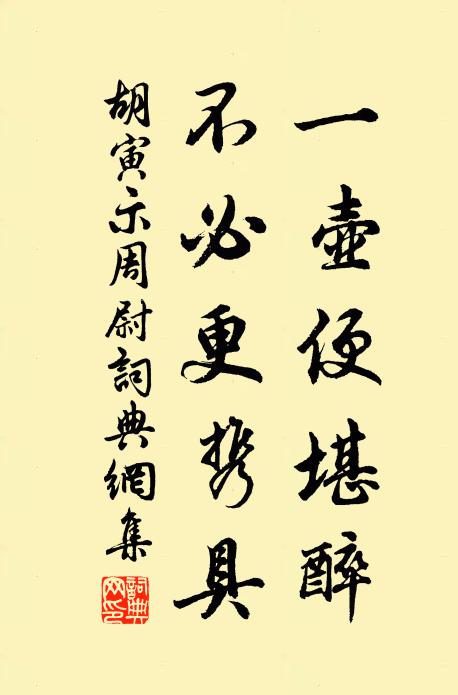 一壺便堪醉
不必更携具
胡寅示周尉詞典網集
詞典